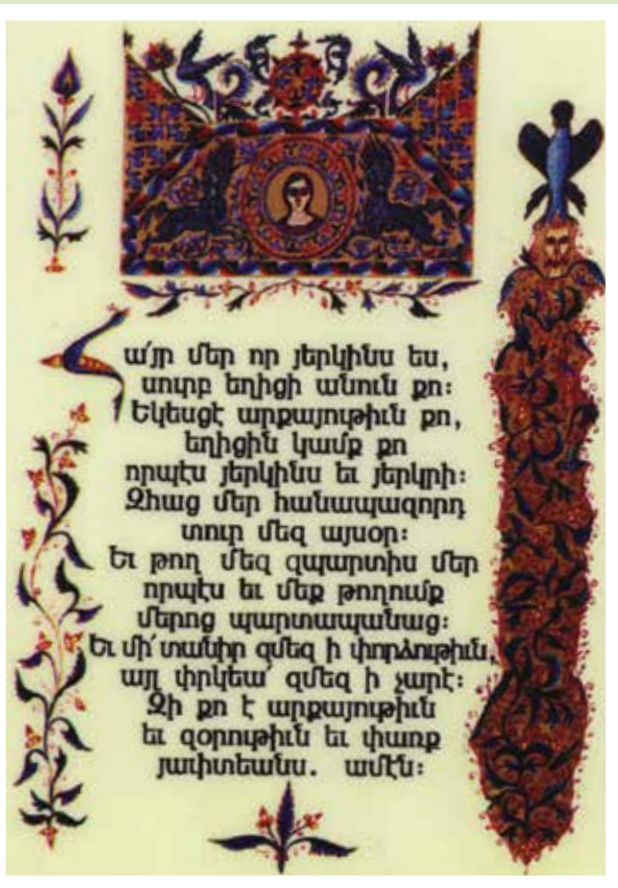 Հա՛յր մեր որ յերկինս ես,
սուրբ եղիցի անուն քո։
Եկեսցէ արքայութիւն քո,
եղիցին կամք քո
որպէս յերկինս եւ յերկրի։
Զհաց մեր հանապազորդ
տուր մեզ այսօր։
Եւ թող մեզ զպարտիս մեր
որպէս եւ մեք թողումք
մերոց պարտապանաց։
Եւ մի՛ տանիր զմեզ ի փորձութիւն,
այլ փրկեա՛ զմեզ ի չարէ։
Զի քո է արքայութիւն
եւ զօրութիւն եւ փառք
յաւիտեանս. ամէն։